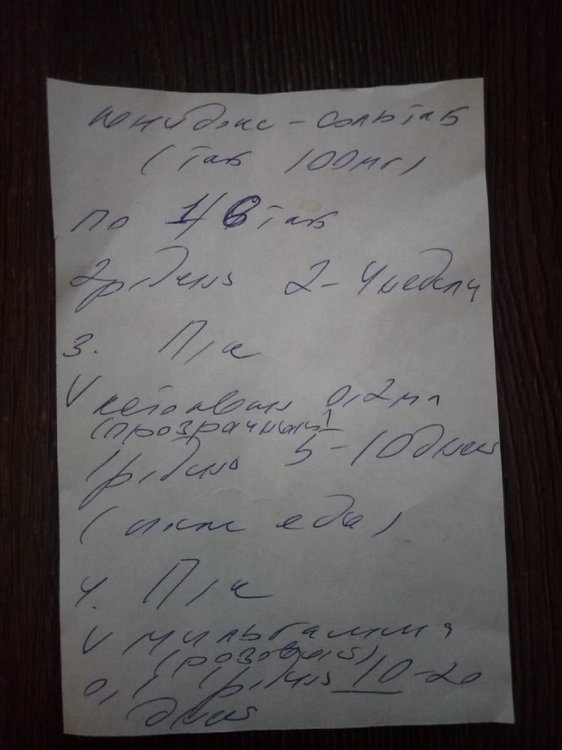 юнидокс-солютаб
(таб 100мг)
по 1/6 таб
2р/день 2-4 недели
3. П/к
V 0,2мл
(прозрачный)
1р/день 5-10 дней
( еда)
4. П/к
V мильгамма
(розовый)
0,1 1р/день 10-20
дней